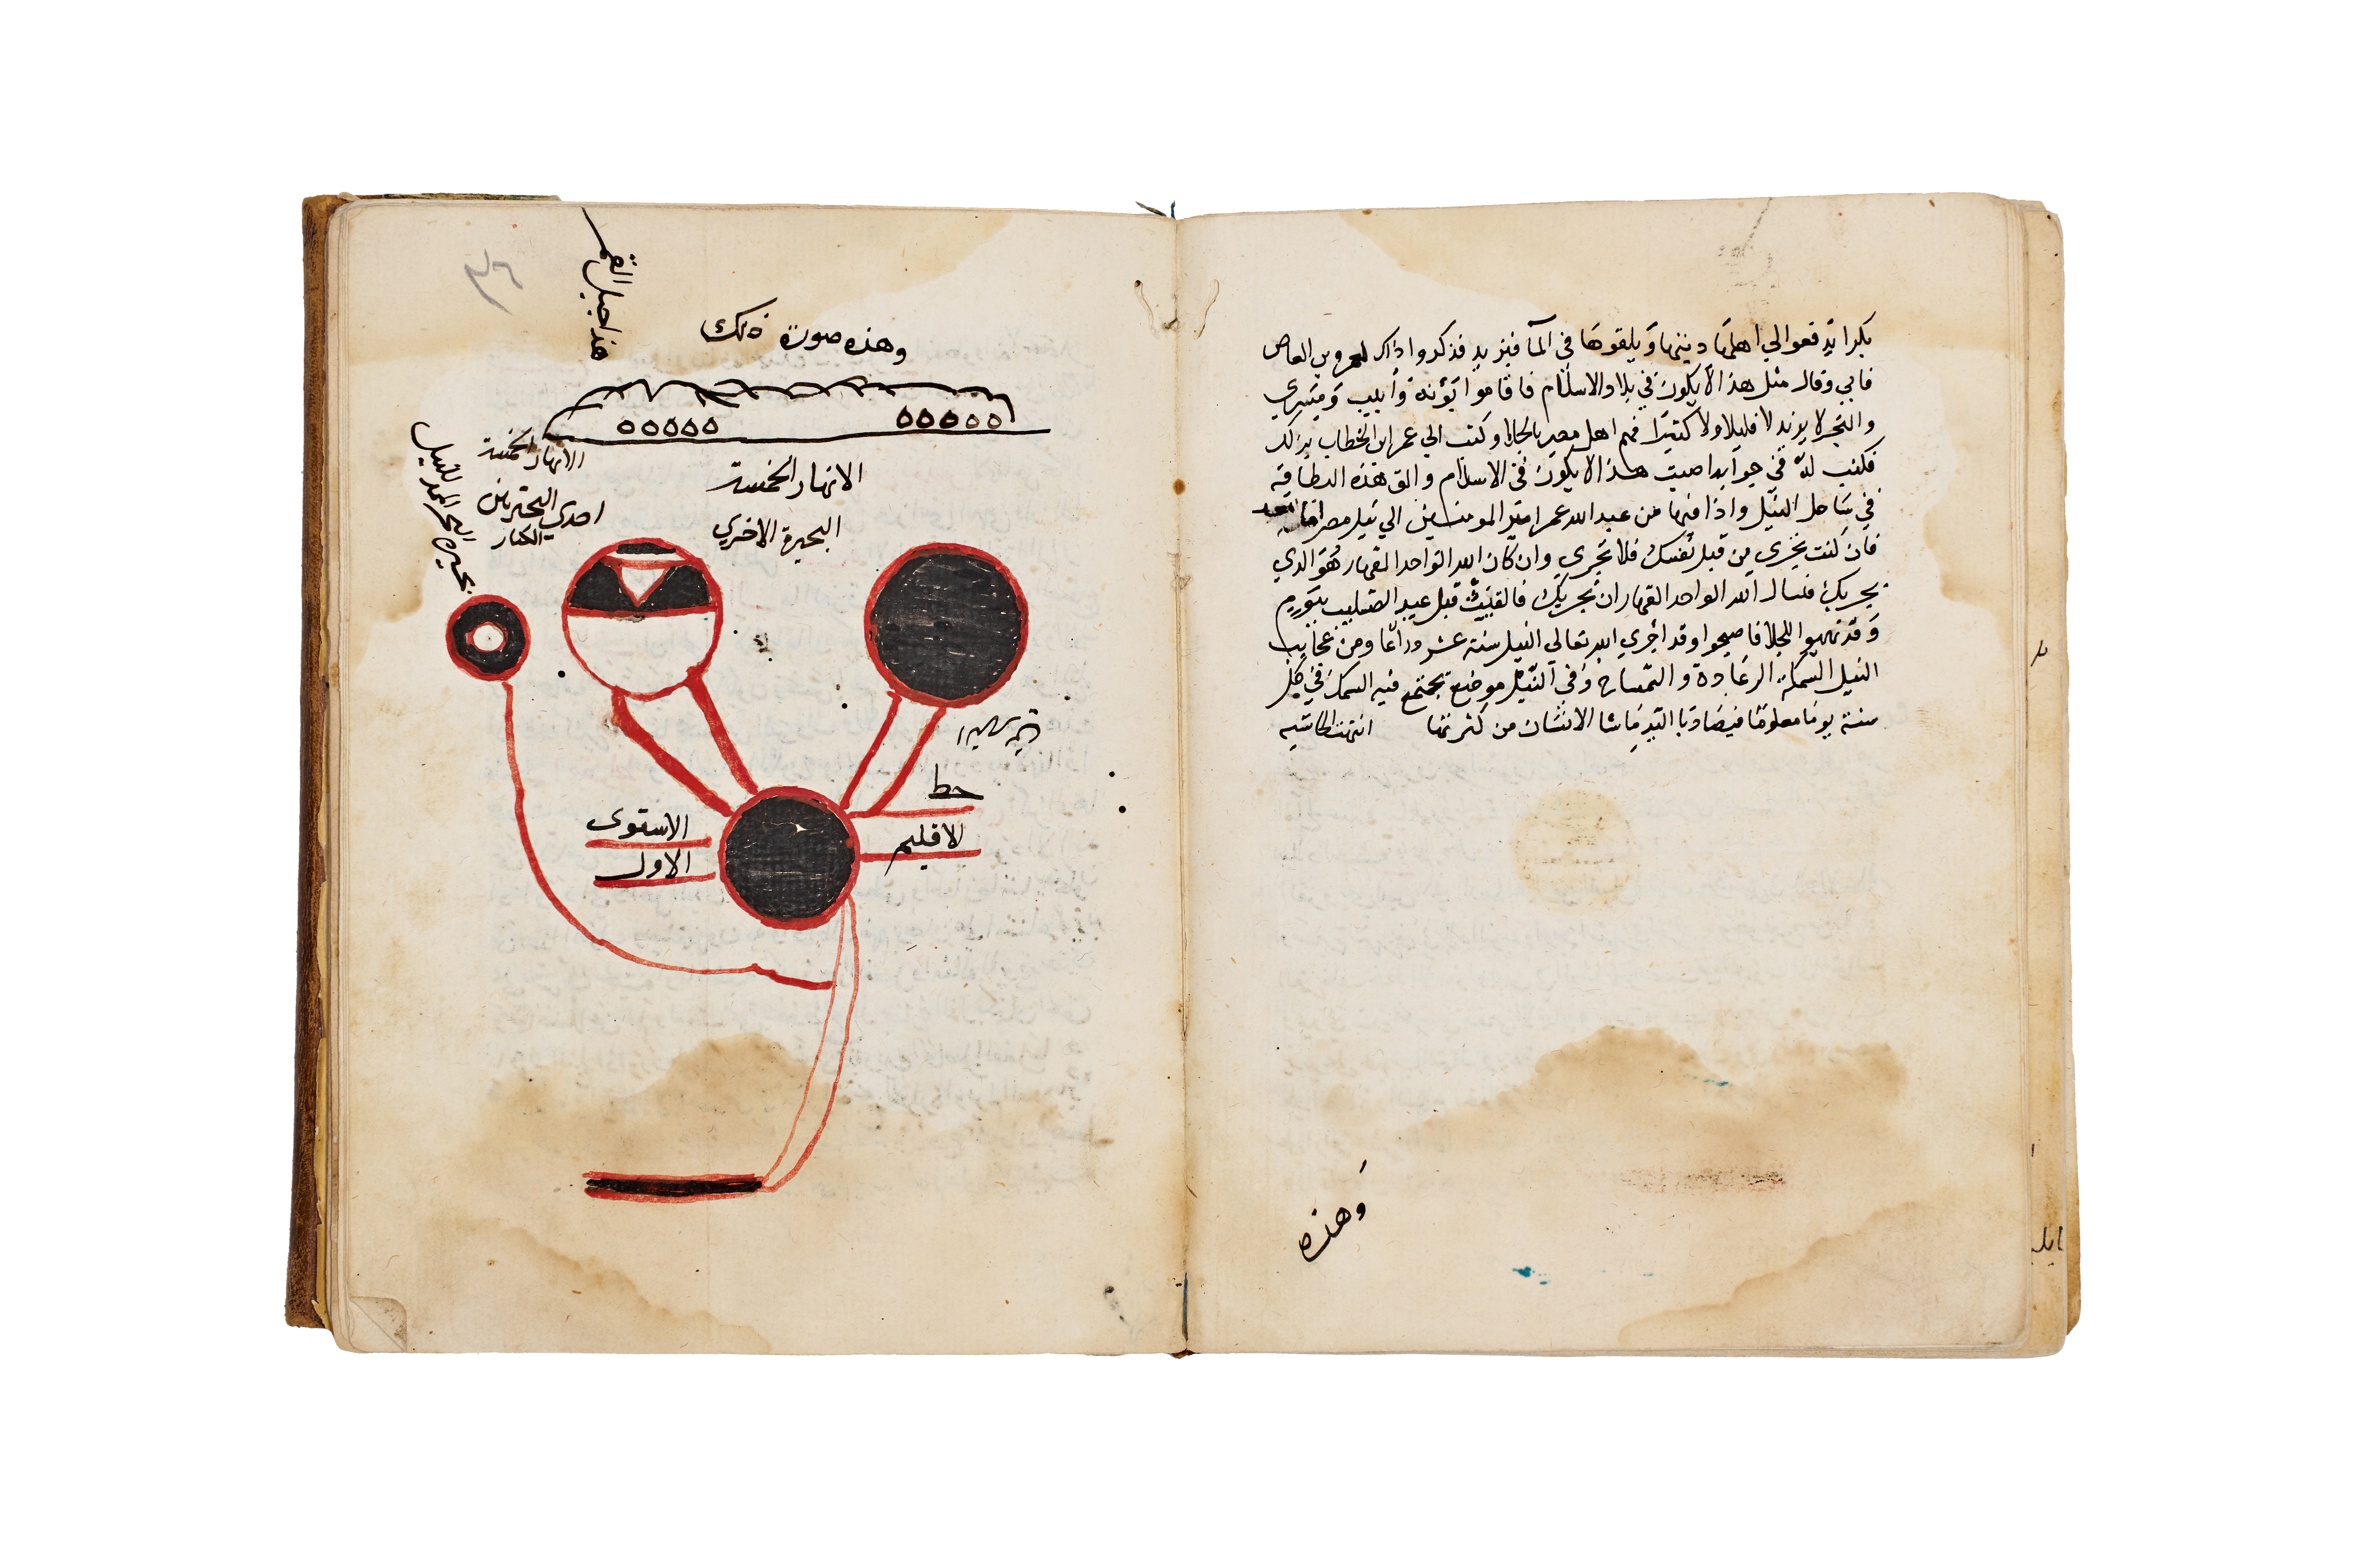 بكرا يدفعوا لي اهلها ديتها ويلقوها في الما فيزيد فذكروا ذلك لعمرو بن العاص
فابي وقال مثل هذا لا يكون في بلاد الاسلام فاقاموا بؤنة وأبيب ومسري
والبحر لا يزيد لا قليلا ولا كثيرا فهم اهل مصر بالجلا وكتب الي عمر ابن الخطاب بذلك
فكتب له في جوابه اصبت هذا لا يكون في الاسلام والق هذه البطاقة
في ساحل النيل واذا فيها من عبد الله عمر امير المومنين الي نيل مصر اما بعد
فان كنت تجري من قبل نفسك فلا تجري وان كان الله الواحد القهار هو الدي
يجريك فنسال الله الواحد القهار ان يجريك فالقيت قبل عيد الصليب بيوم
وقد تهيوا للجلا فاصبحوا وقد اجري الله تعالي النيل ستة عشر دراعا ومن عجايب
النيل السمكة الرعادة والتمساح وفي النيل موضع يجتمع فيه السمك في كل
سنة يوما معلوما فيصاد باليد ما شا الانسان من كثرتها انتهت الحاشيه
وهذه
وهذه صورة ذلك
هذا جبل القمر
الانهار الخمسة
الانهار الخمسة
احدي البحرتين
الكبار
البحيرة الاخري
بحيرة البحر الممد للنيل
خط
الاستوى
الاقليم
الاول